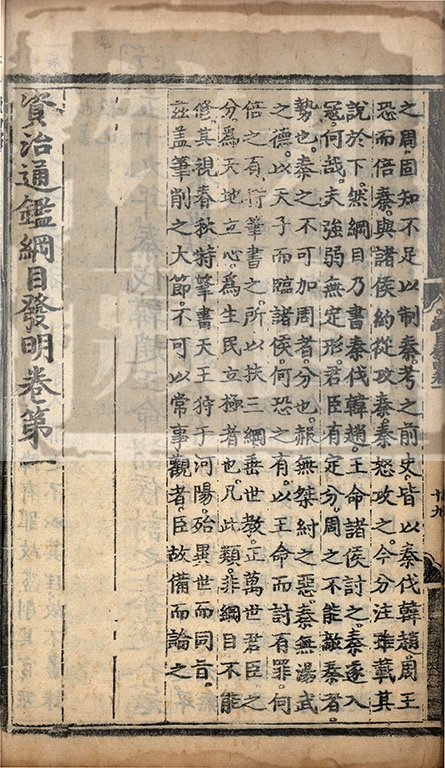 之周固知不足以制秦考之前史皆以秦伐韓趙周王
恐而倍秦與諸侯約從攻秦秦怒攻之今分注雖載其
說於下然綱目乃書秦伐韓趙王命諸侯討之秦遂入
寇何哉夫強弱無定形君臣有定分周之不能敵秦者
勢也秦之不可加周者分也赧無桀紂之惡秦無湯武
之德以天子而臨諸侯何恐之有以王命而討有罪何
倍之有行筆書之所以扶三綱垂世教正萬世君臣之
分為天地立心為生民立極者也凡此類非綱目不能
脩其視春秋特筆書天王狩于河陽殆異世而同旨
茲盖筆削之大節不可以常事觀者臣故備而論之
資治通鑑綱目發明卷第一
十九